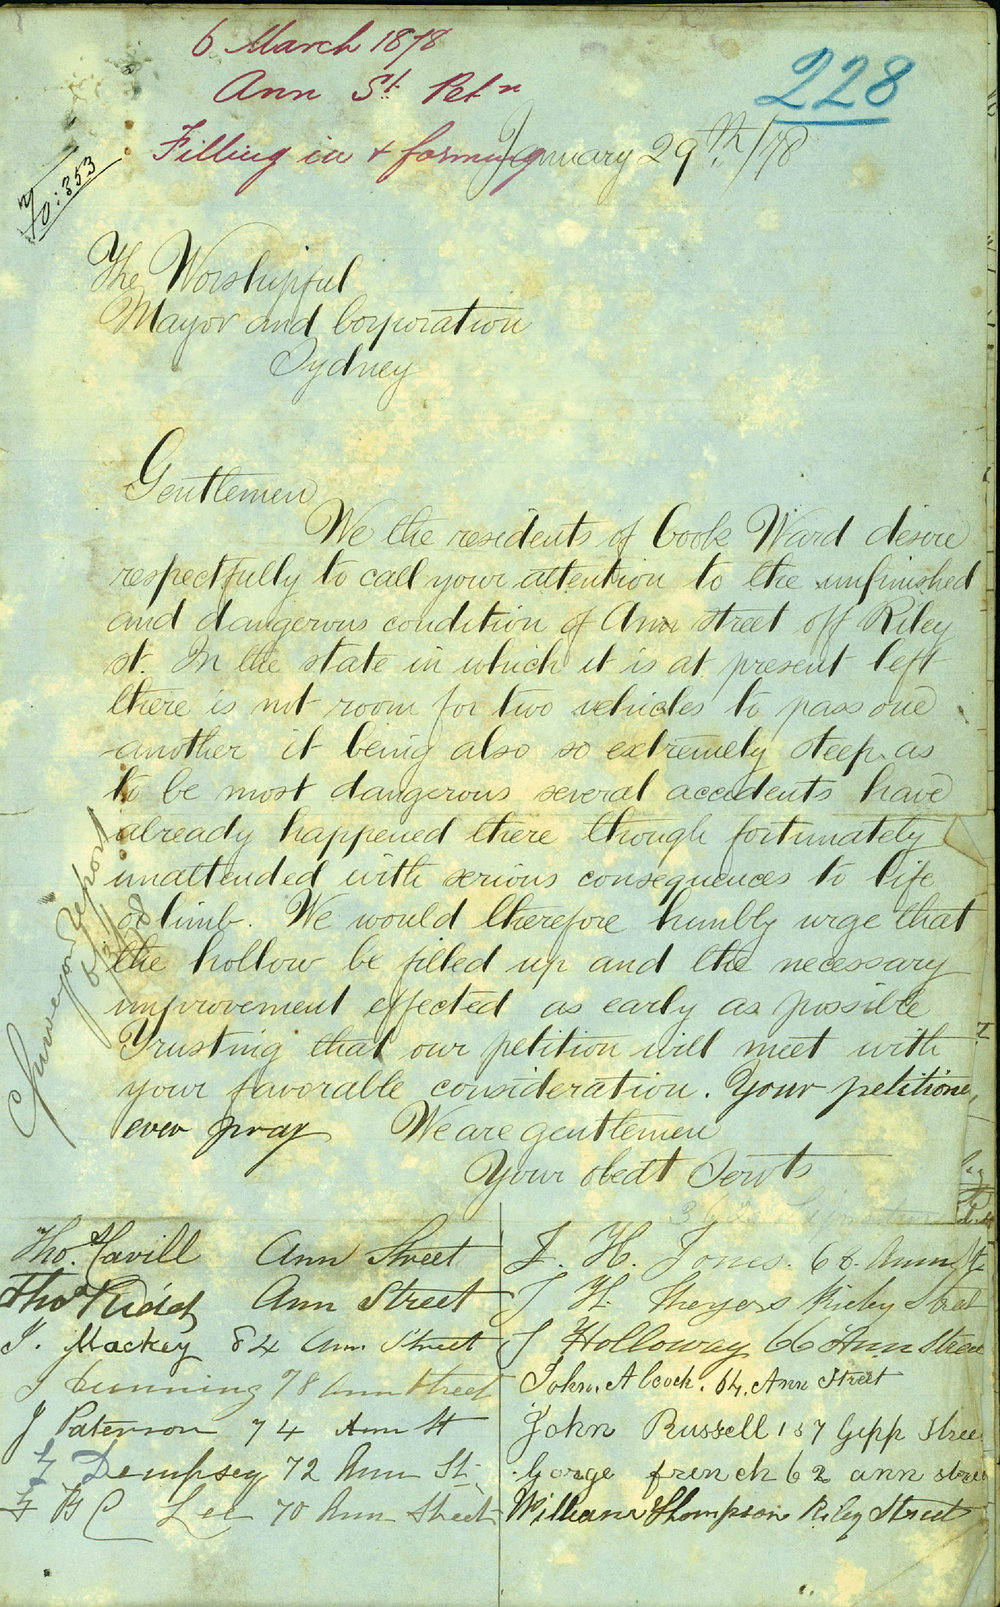 6 March 1878
Ann St. Petn
228
Filling in & forming
January 29th/78
70:353
The Worshipful
Mayor and Corporation
Sydney
Gentlemen
We the residents of Cook Ward desire
respectfully to call your attention to the unfinished
and dangerous condition of Ann street off Riley
st. In the state in which it is at present left
there is not room for two vehicles to pass one
another it being also so extremely steep as
to be most dangerous several accidents have
already happened there though fortunately
unattended with serious consequences to life
or limb. We would therefore humbly urge that
the hollow be filled up and the necessary
improvement effected as early as possible
Trusting that our petition will meet with
your favorable consideration. Your petitione
ever pray We are gentlemen
Your obedt Servts
Surveyor Report
Thos. Cavill Ann Street
Thos Kidd Ann Street
J. Mackey 84 Ann Street
J Cunning 78 Ann Street
J Paterson 74 Ann St
Dempsey 72 Ann St.
Lee 70 Ann Street
J. H. Jones. 68. Ann St.
J H. Meyers Riley Street
J Holloway 66 Ann Stree
John. Alcock. 64. Ann Street
John Russell 157 Gipp Stree
Gorge french 62 ann stree
William Thompson Riley Street